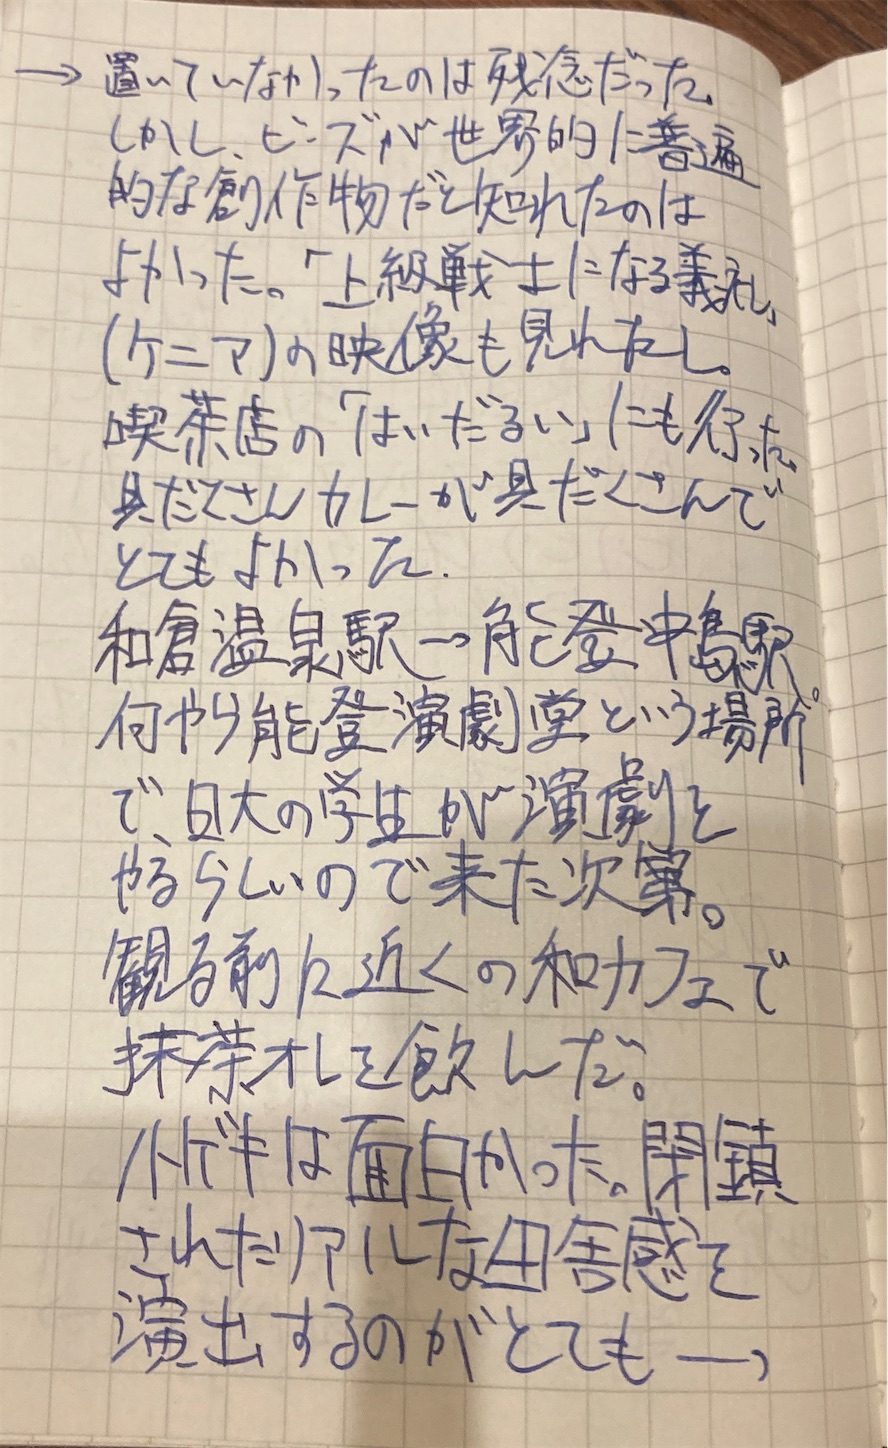 → 置いていなかったのは残念だった。
しかし、ビーズが世界的に普遍
的な創作物だと知れたのは
よかった。「上級戦士になる義礼」
(ケニア)の映像も見れたし。
喫茶店の「はいだるい」にも行った。
具だくさんカレーが具だくさんで
とてもよかった.
和倉温泉駅→能登中島駅。
何やら能登演劇堂という場所
で、日大の学生が演劇を
やるらしいので来た次第。
観る前に近くの和カフェで
抹茶オレを飲んだ。
ハトゲキは面白かった。閉鎖
されたリアルな田舎感を
演出するのがとても→